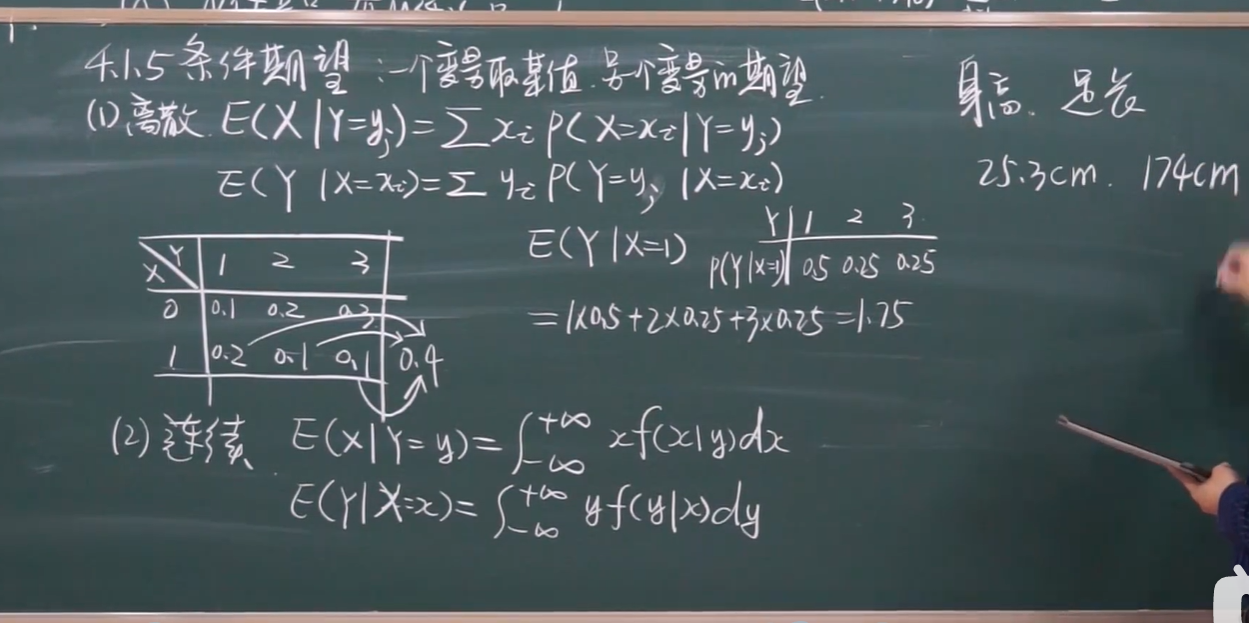 4.1.5 条件期望:一个变量取某值.另个变量的期望.
(1)离散. E(X|Y=yj)=∑xi P(X=xi|Y=yj)
E(Y|X=xi)=∑ yi P(Y=yj|X=xi)
X Y 1 2 3
0 0.1 0.2 0.3
1 0.2 0.1 0.1 0.4
E(Y|X=1)
Y 1 2 3.
P(Y|X=1) 0.5 0.25 0.25
=1×0.5+2×0.25+3×0.25=1.75
(2)连续 E(X|Y=y)=∫_{-∞}^{+∞} xf(x|y)dx
E(Y|X=x)=∫_{-∞}^{+∞} yf(y|x)dy
身高. 足长
25.3cm. 174cm